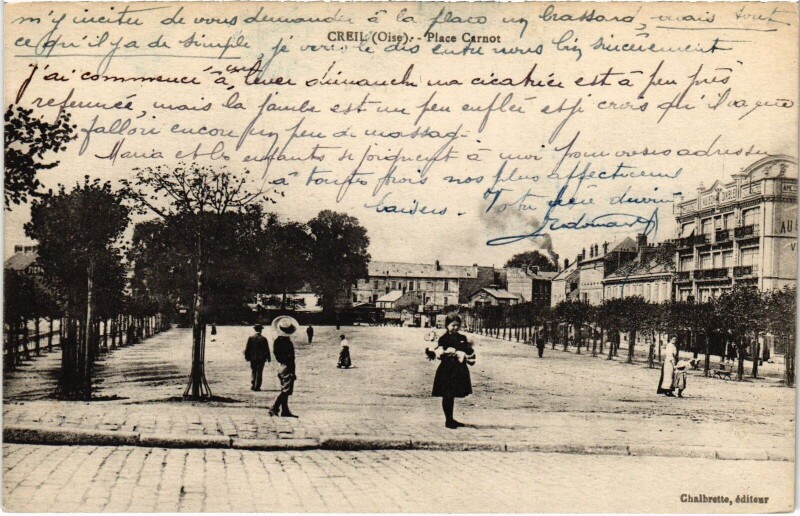 m'y inciter de vous demander à la place un brassard, mais tout
ce qu'il y a de simple, je vous le dis entre nous bien sincèrement
CREIL (Oise). - Place Carnot
j'ai commencé à lever dimanche ma cicatrice est à peu près
refermée, mais la jambe est un peu enflée et je crois qu'il va me
falloir encore un peu de massage
Maria et les enfants se joignent à moi pour vous adresser
à toutes trois nos plus affectueux
baisers. Votre dévoué
Edouard
AU
Chalbrette, éditeur